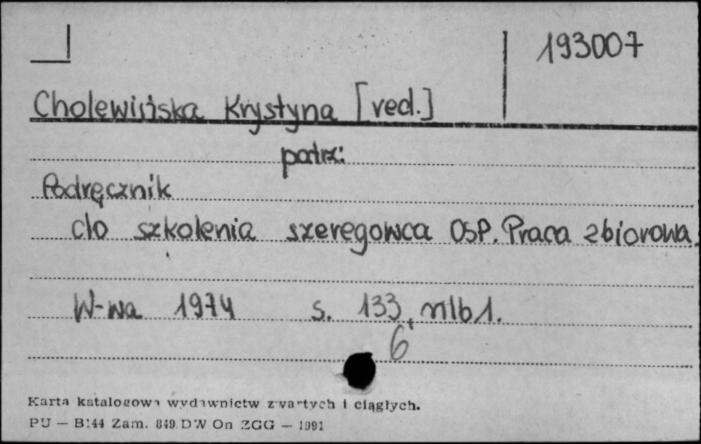 193007
Cholewińska Krystyna [red.]
patrz:
Podręcznik
do szkolenia szeregowca OSP. Praca zbiorowa.
W-wa 1974 s. 133, nlb1.
6
Karta katalogowa wydawnictw zwartych i ciągłych.
PU — B144 Zam. 849 DW On ZGG — 1991